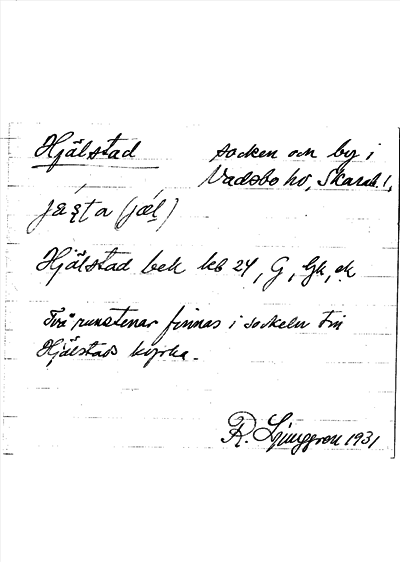 Hjälstad
socken och by i
Vadsbo hd, Skarab. l.,
Hjälstad bek kb 24, G, Gk, ek
Två runstenar finnas i sockeln till
Hjälstads kyrka.
R. Ljunggren 1931